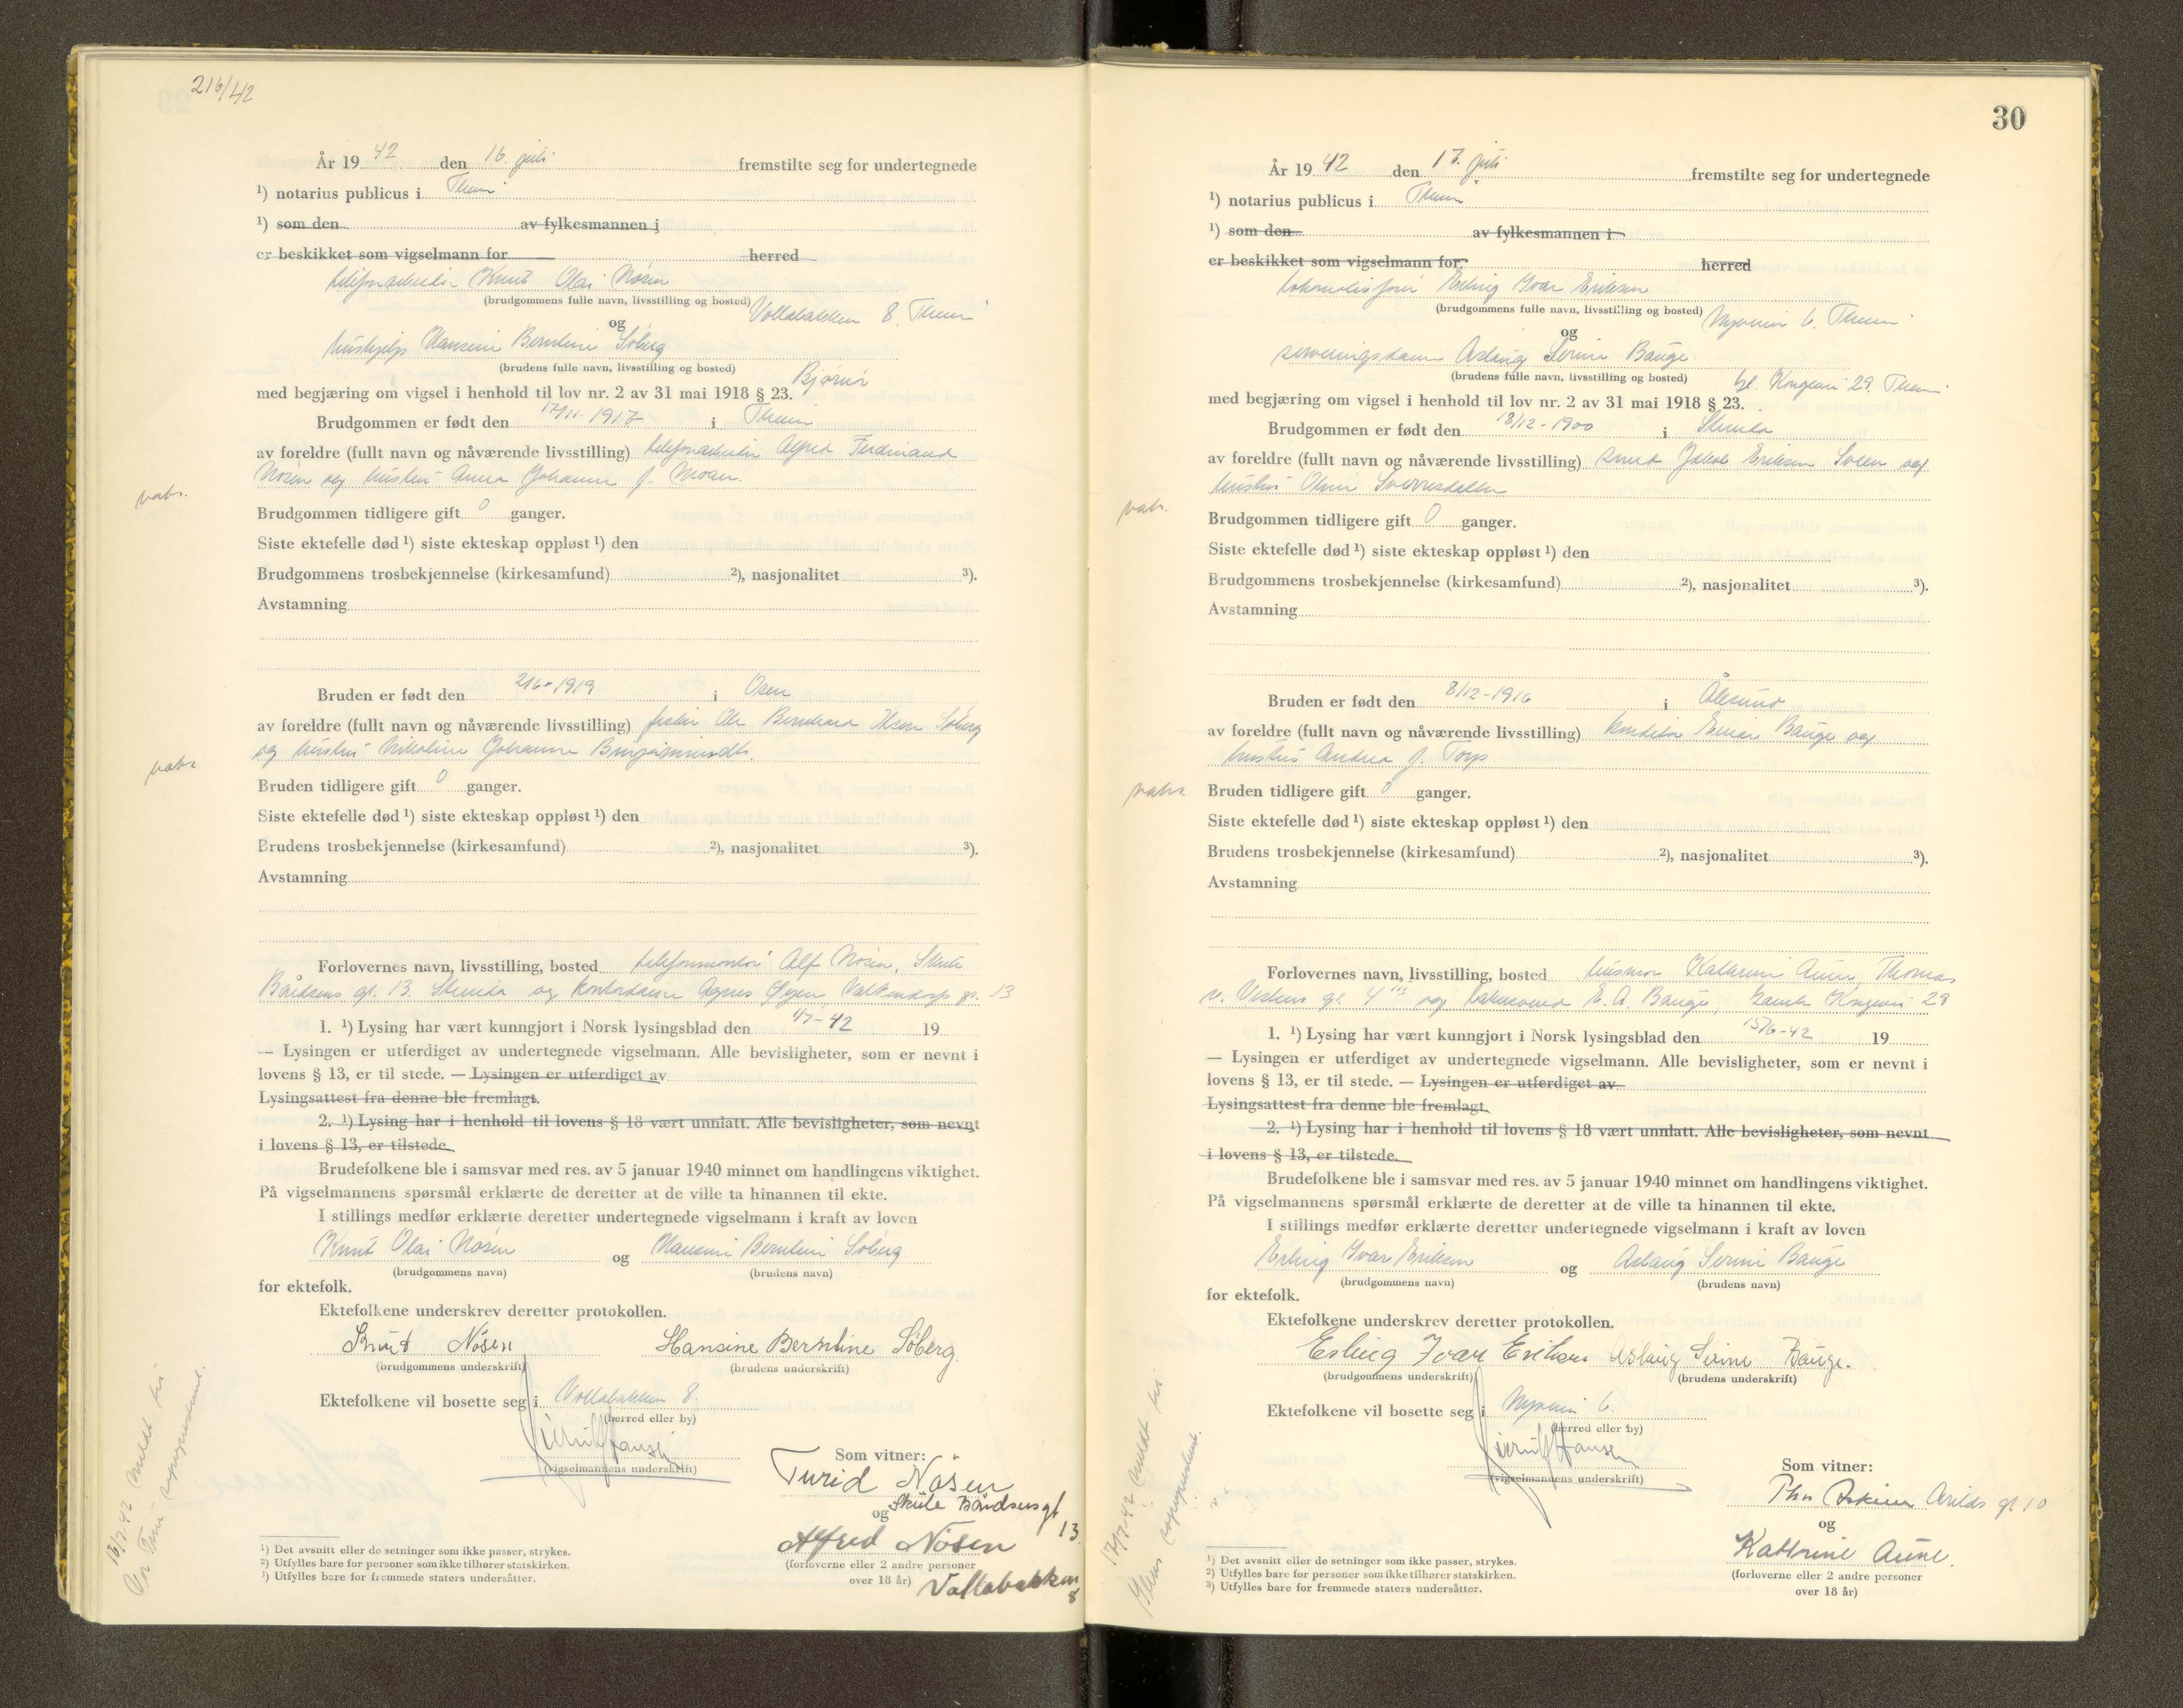 216/42
År 19 42 den 16. juli fremstilte seg for undertegnede
¹) notarius publicus i
¹) som den av fylkesmannen i
er beskikket som vigselmann for herred
telefonarbeider Knut Olai Nøsen
(brudgommens fulle navn, livsstilling og bosted) Vollabakken 8.
og
hushjelp Hansine Berntine Søberg
(brudens fulle navn, livsstilling og bosted) Bjørnør
med begjæring om vigsel i henhold til lov nr. 2 av 31 mai 1918 § 23.
Brudgommen er født den 17/11-1917 i
av foreldre (fullt navn og nåværende livsstilling) telefonarbeider Alfred Ferdinand
Nøsen og hustru Anna Johanne f. Moan.
vabs.
Brudgommen tidligere gift 0 ganger.
Siste ektefelle død ¹) siste ekteskap oppløst ¹) den
Brudgommens trosbekjennelse (kirkesamfund) ²), nasjonalitet ³).
Avstamning
Bruden er født den 21/6-1919 i Osen
av foreldre (fullt navn og nåværende livsstilling) fisker Ole Bernhard Olsen Søberg
og hustru Johanna
vabs
Bruden tidligere gift 0 ganger.
Siste ektefelle død ¹) siste ekteskap oppløst ¹) den
Brudens trosbekjennelse (kirkesamfund) ²), nasjonalitet ³).
Avstamning
Forlovernes navn, livsstilling, bosted telefonmontør Alf Nøsen, Skule
Bårdsens gt. 13. Strinda og kontordame Agnes gt. 13
1. ¹) Lysing har vært kunngjort i Norsk lysingsblad den 4/7-42 19
— Lysingen er utferdiget av undertegnede vigselmann. Alle bevisligheter, som er nevnt i
lovens § 13, er til stede. — Lysingen er utferdiget av
Lysingsattest fra denne ble fremlagt.
2. ¹) Lysing har i henhold til lovens § 18 vært unnlatt. Alle bevisligheter, som nevnt
i lovens § 13, er tilstede.
Brudefolkene ble i samsvar med res. av 5 januar 1940 minnet om handlingens viktighet.
På vigselmannens spørsmål erklærte de deretter at de ville ta hinannen til ekte.
I stillings medfør erklærte deretter undertegnede vigselmann i kraft av loven
Knut Olai Nøsen og Hansine Berntine Søberg
(brudgommens navn) (brudens navn)
for ektefolk.
Ektefolkene underskrev deretter protokollen.
Knut Nøsen Hansine Berntine Søberg.
(brudgommens underskrift) (brudens underskrift)
Ektefolkene vil bosette seg i Vollabakken 8.
(herred eller by)
(vigselmannens underskrift)
Som vitner:
Turid Nøsen
Skule Bårdsens gt 13.
og
Alfred Nösen
(forloverne eller 2 andre personer
over 18 år) Vollabakken 8
16/7-42 meldt til
¹) Det avsnitt eller de setninger som ikke passer, strykes.
²) Utfylles bare for personer som ikke tilhører statskirken.
³) Utfylles bare for fremmede staters undersåtter.
30
År 19 42 den 17. juli fremstilte seg for undertegnede
¹) notarius publicus i
¹) som den av fylkesmannen i
er beskikket som vigselmann for herred
lokomotivfører Erling Ivar Eriksen
(brudgommens fulle navn, livsstilling og bosted) Nyveien 6.
og
serveringsdame Aslaug Serine Bauge
(brudens fulle navn, livsstilling og bosted) gl. Kongevei 29.
med begjæring om vigsel i henhold til lov nr. 2 av 31 mai 1918 § 23.
Brudgommen er født den 18/12-1900 i Strinda
av foreldre (fullt navn og nåværende livsstilling) smed Jakob Eriksen Solen og
hustru
vabs.
Brudgommen tidligere gift 0 ganger.
Siste ektefelle død ¹) siste ekteskap oppløst ¹) den
Brudgommens trosbekjennelse (kirkesamfund) ²), nasjonalitet ³).
Avstamning
Bruden er født den 8/12-1916 i Ålesund
av foreldre (fullt navn og nåværende livsstilling) konditor Einar Bauge og
hustru Andrea f. Torp
vabs.
Bruden tidligere gift 0 ganger.
Siste ektefelle død ¹) siste ekteskap oppløst ¹) den
Brudens trosbekjennelse (kirkesamfund) ²), nasjonalitet ³).
Avstamning
Forlovernes navn, livsstilling, bosted husmor Kathrine Aune, Thomas
v. Vestens gt. 4 og E. A. Bauge, Gamle Kongevei 29
1. ¹) Lysing har vært kunngjort i Norsk lysingsblad den 15/6-42 19
— Lysingen er utferdiget av undertegnede vigselmann. Alle bevisligheter, som er nevnt i
lovens § 13, er til stede. — Lysingen er utferdiget av
Lysingsattest fra denne ble fremlagt.
2. ¹) Lysing har i henhold til lovens § 18 vært unnlatt. Alle bevisligheter, som nevnt
i lovens § 13, er tilstede.
Brudefolkene ble i samsvar med res. av 5 januar 1940 minnet om handlingens viktighet.
På vigselmannens spørsmål erklærte de deretter at de ville ta hinannen til ekte.
I stillings medfør erklærte deretter undertegnede vigselmann i kraft av loven
Erling Ivar Eriksen og Aslaug Serine Bauge
(brudgommens navn) (brudens navn)
for ektefolk.
Ektefolkene underskrev deretter protokollen.
Erling Ivar Eriksen Aslaug Serine Bauge.
(brudgommens underskrift) (brudens underskrift)
Ektefolkene vil bosette seg i Nyveien 6.
(herred eller by)
(vigselmannens underskrift)
Som vitner:
Arilds gt 10
og
Kathrine Aune.
(forloverne eller 2 andre personer
over 18 år)
17/7-42 meldt til
¹) Det avsnitt eller de setninger som ikke passer, strykes.
²) Utfylles bare for personer som ikke tilhører statskirken.
³) Utfylles bare for fremmede staters undersåtter.